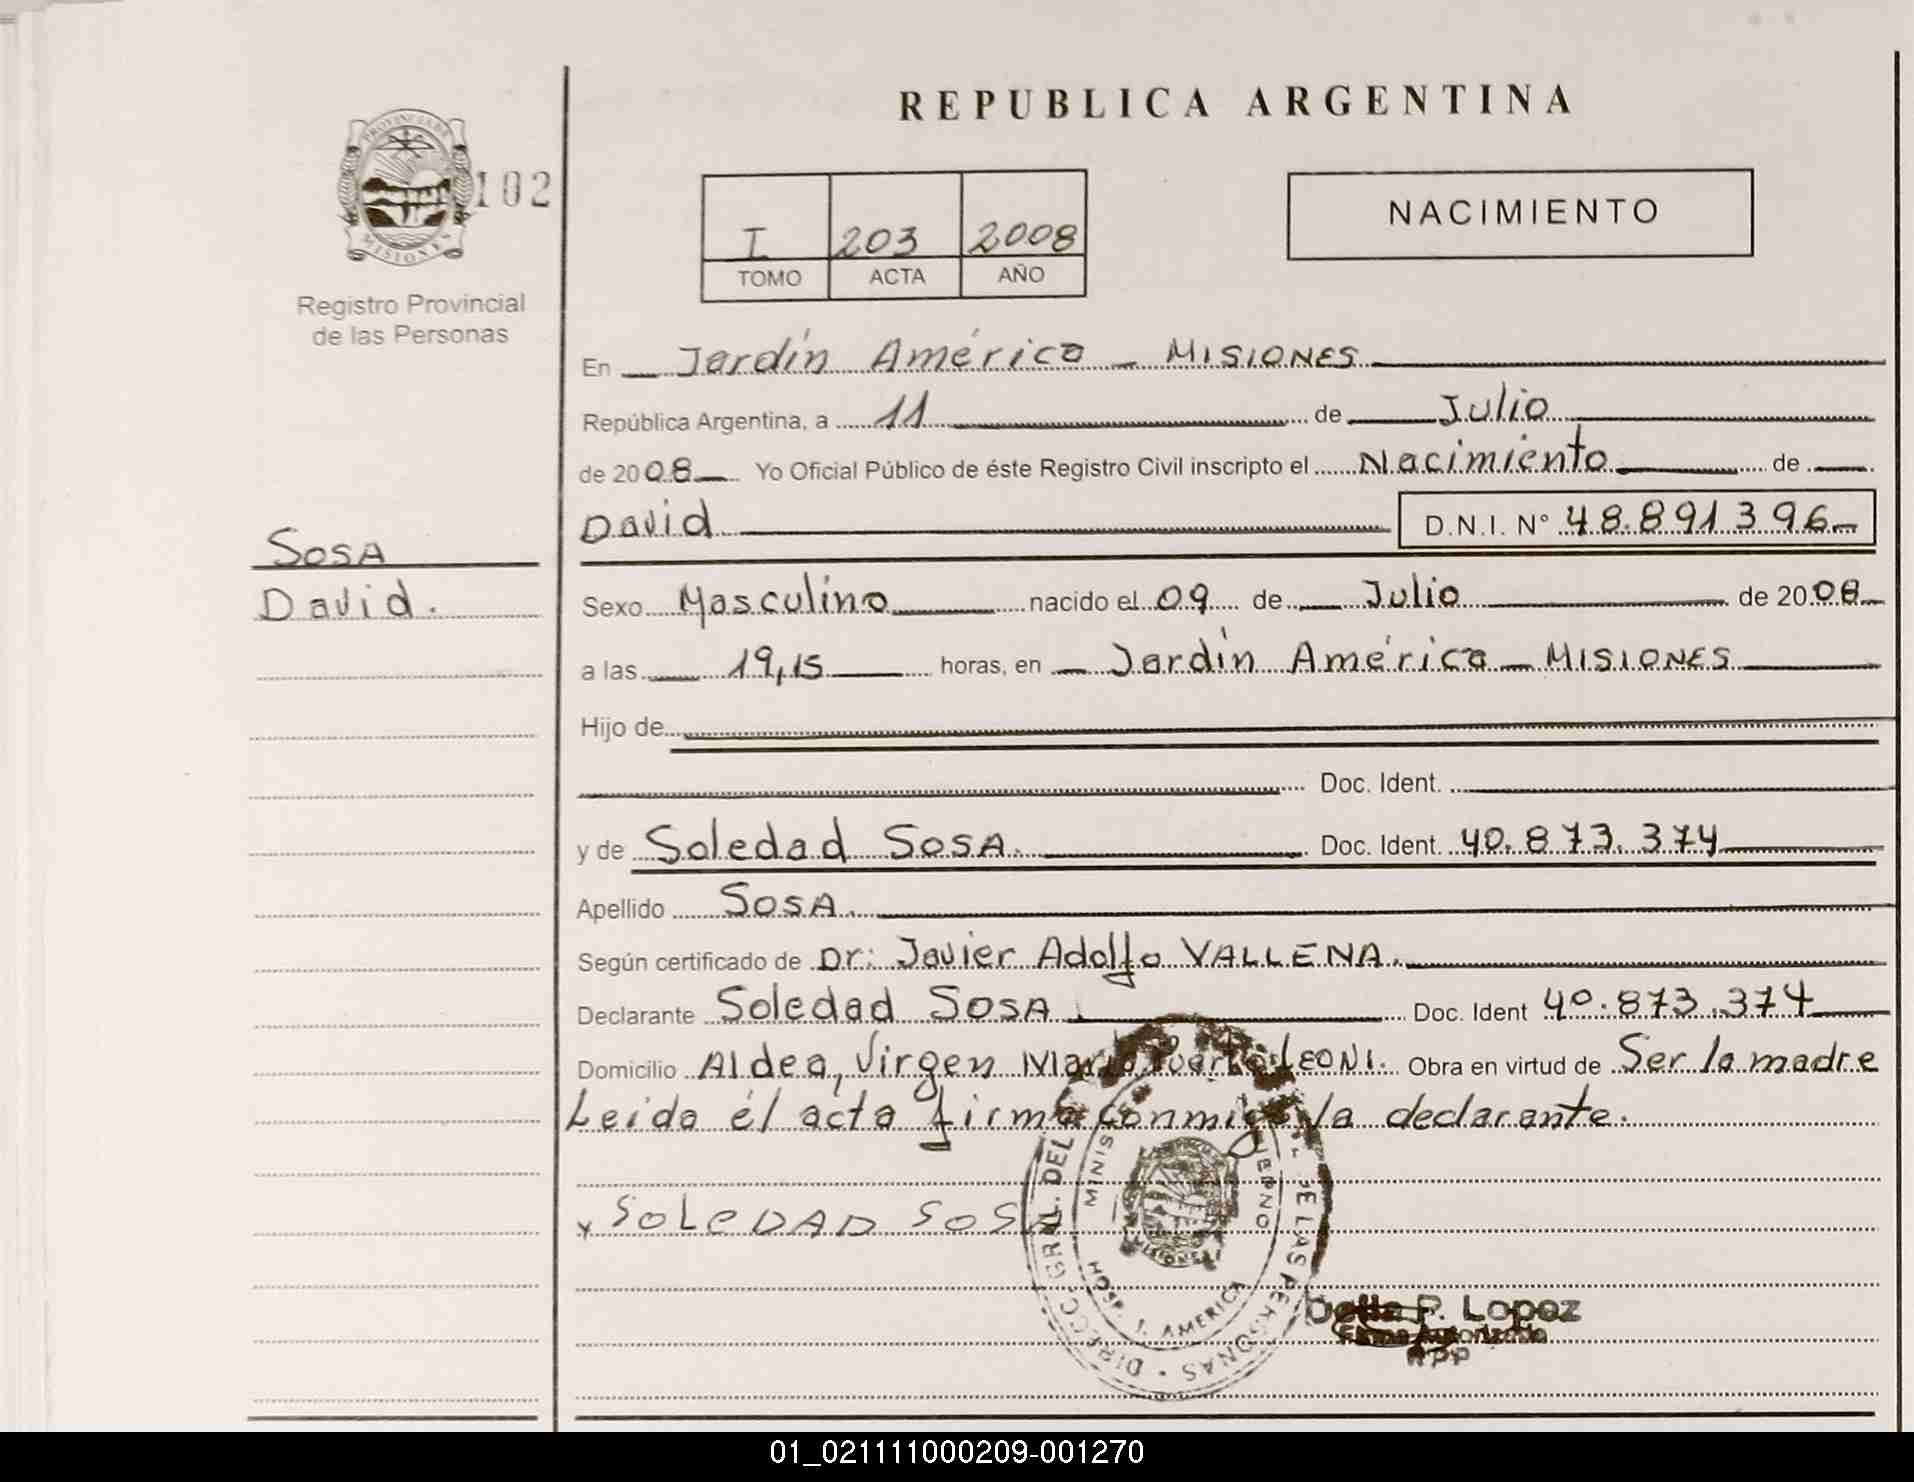 REPUBLICA ARGENTINA
PROVINCIA DE
MISIONES
102
Registro Provincial
de las Personas
I 203 2008
TOMO ACTA AÑO
NACIMIENTO
En Jardín América - MISIONES
República Argentina, a 11 de Julio
de 2008 Yo Oficial Público de éste Registro Civil inscripto el Nacimiento de
David D.N.I. N° 48.891396
SOSA
David.
Sexo Masculino nacido el 09 de Julio de 2008
a las 19,15 horas, en Jardín América - MISIONES
Hijo de
Doc. Ident.
y de Soledad SOSA. Doc. Ident. 40.873.374
Apellido SOSA.
Según certificado de Dr: Javier Adolfo VALLENA.
Declarante Soledad SOSA. Doc. Ident 40.873.374
Domicilio Aldea, Virgen María Puerto LEONI. Obra en virtud de Ser la madre
Leida él acta firma conmigo la declarante.
x SOLEDAD SOSA
DIRECC. GRAL. DEL DE LAS PERSONAS
MINIS
HOSP. J. AMERICA
MISIONES
P. Lopez
Firma Autorizada
RPP
01_021111000209-001270